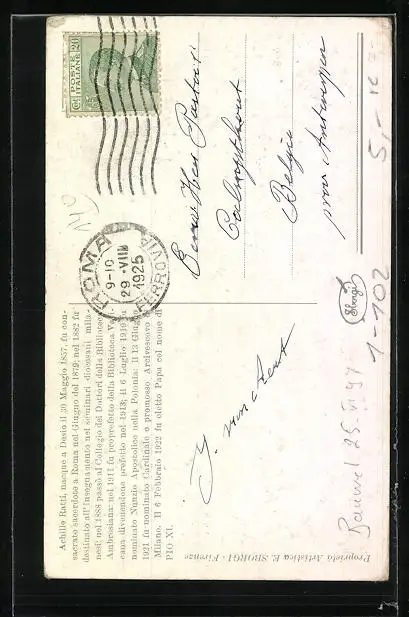 Achille Ratti, nacque a Desio il 30 Maggio 1857. fu con-
sacrato sacerdote a Roma nel Giugno del 1879; nel 1882 fu
destinato all'insegnamento nei seminari diocesani mila-
nesi; nel 1888 passò al Collegio dei Dottori della Biblioteca
Ambrosiana; nel 1911 fu proprefetto della Biblioteca Vati
cana divenendone prefetto nel 1913; il 6 Luglio 1919
nominato Nunzio Apostolico nella Polonia; il 13 Giugno
1921 fu nominato Cardinale e promosso Arcivescovo
Milano. Il 6 Febbraio 1922 fu eletto Papa col nome di
PIO XI.
POSTE
ITALIANE
C.MI 20
ROMA
9-10
29 - VII
1925
FERROVIA
Calmpthout
Belgie
prov. Antwerpen
Sborgi
1-102
5,-
Proprietà Artistica E. SBORGI - Firenze